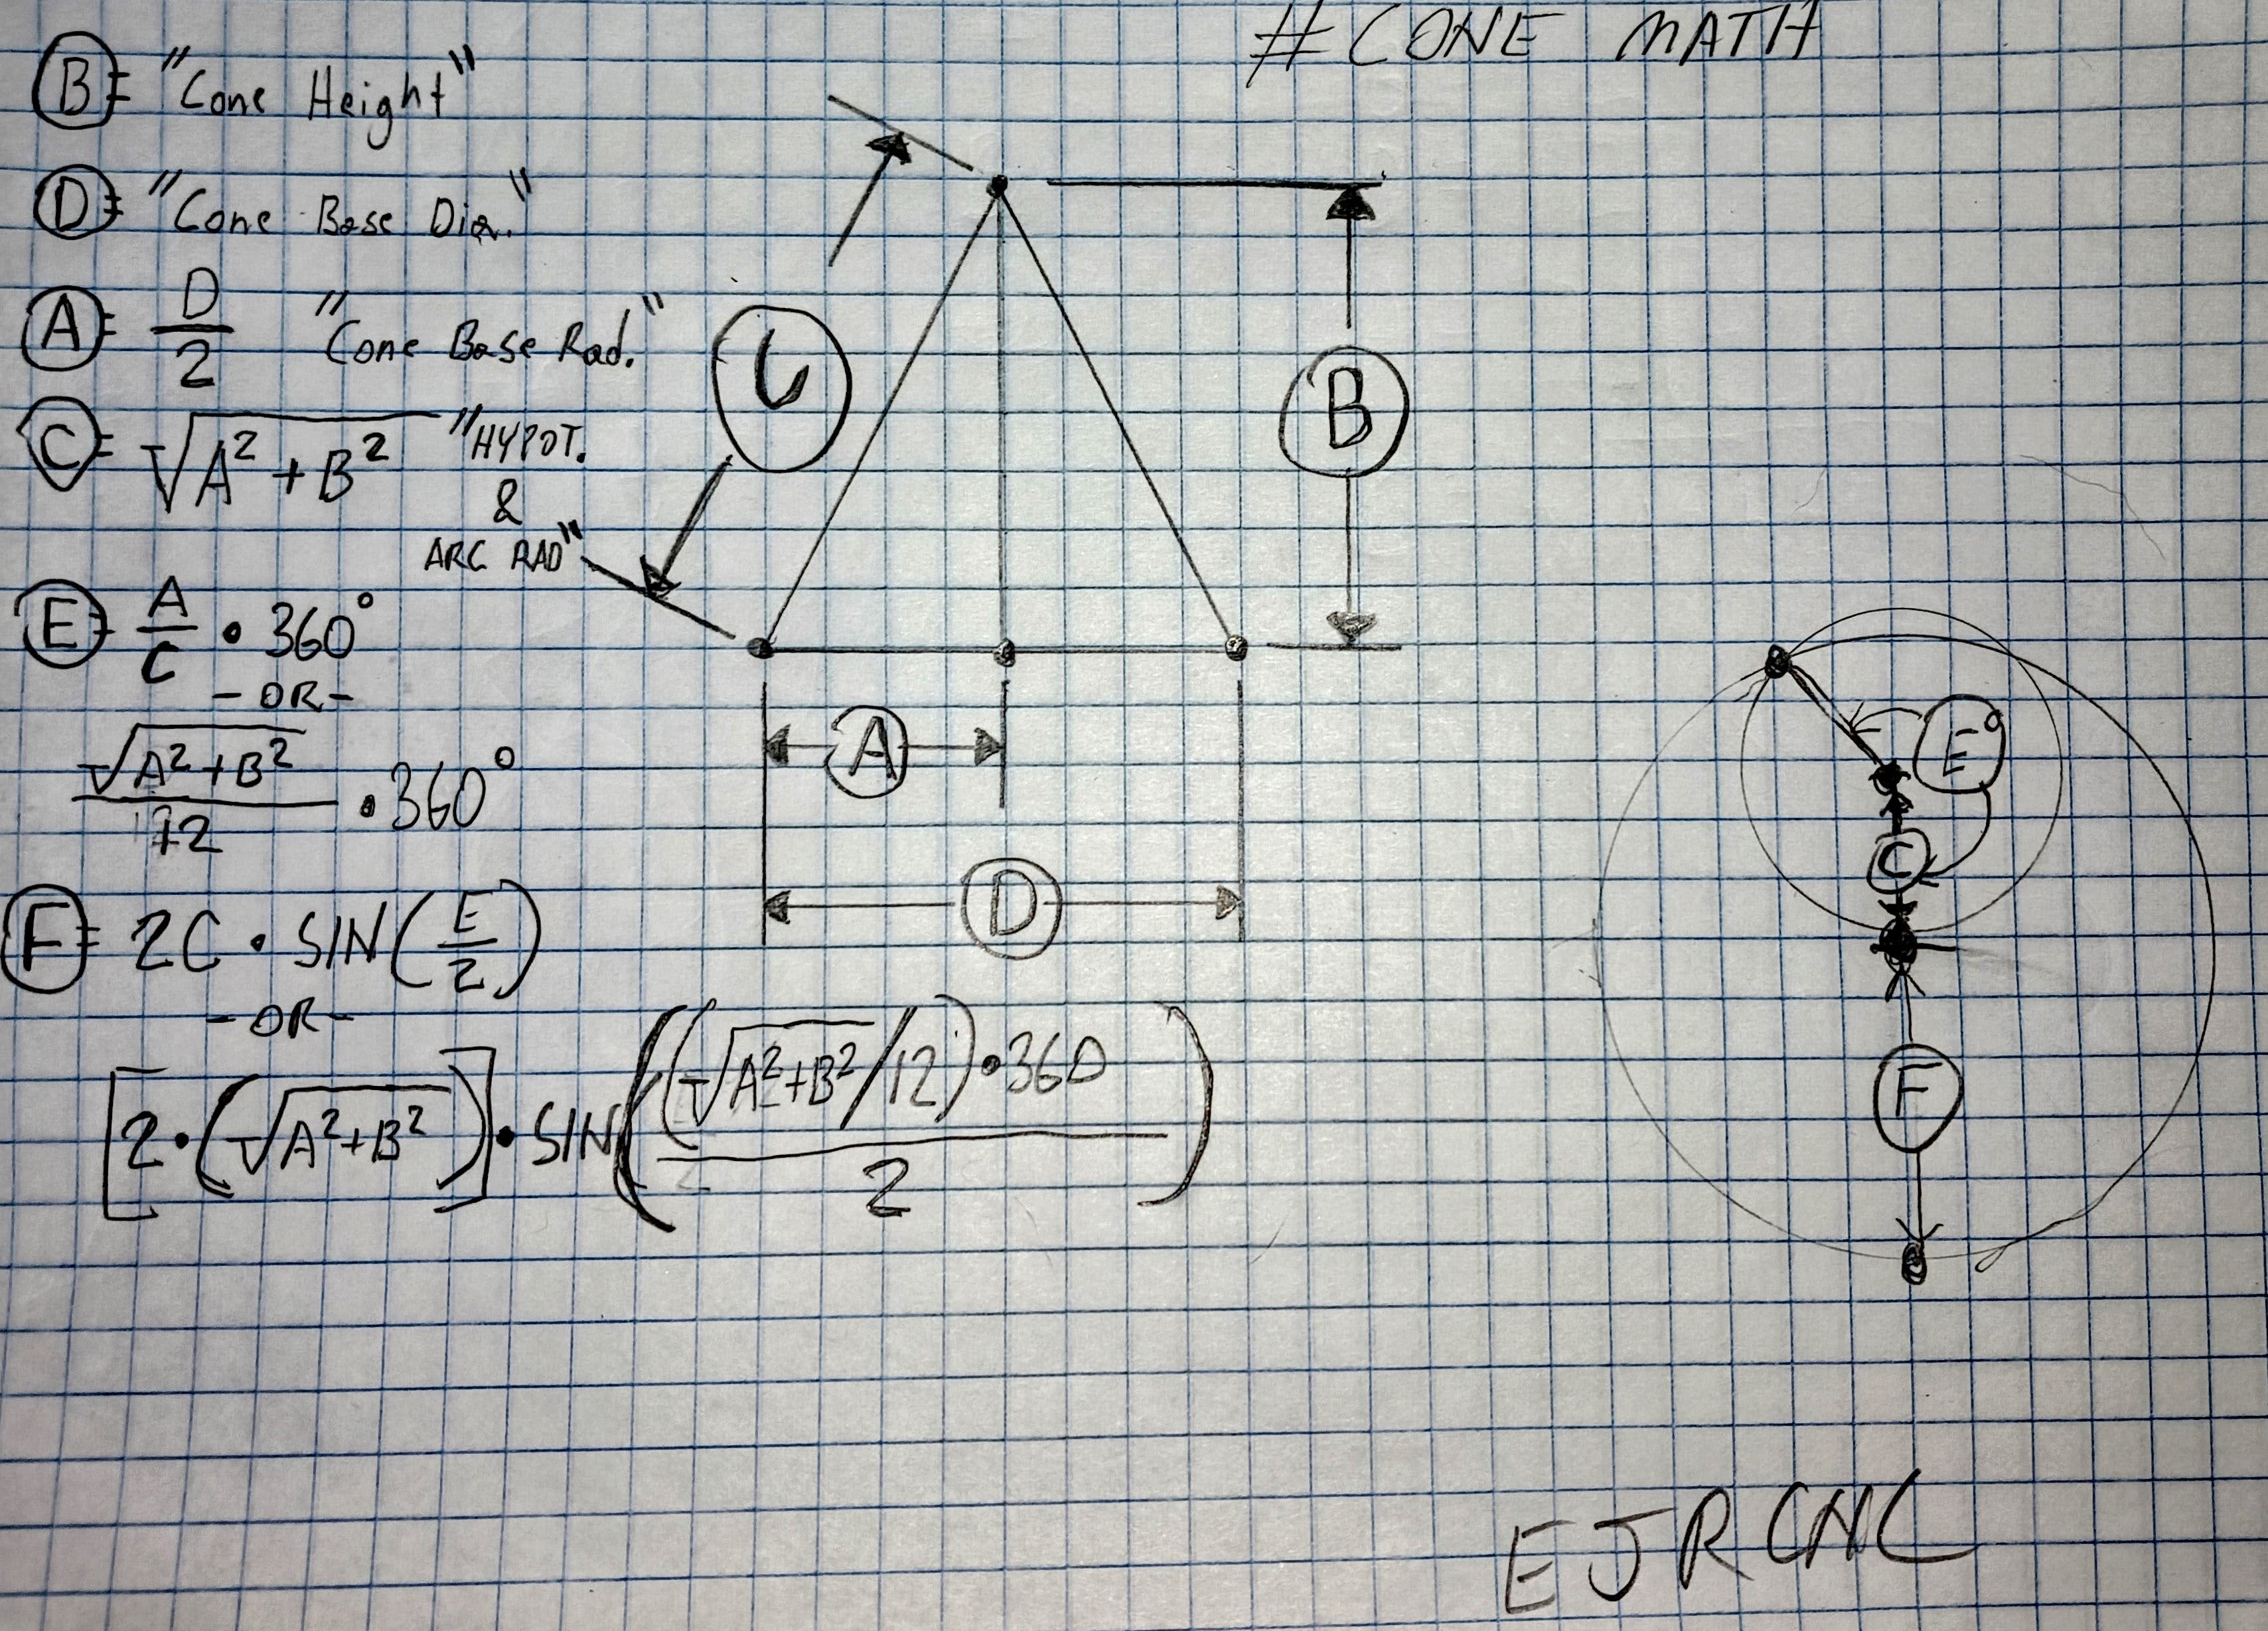 # CONE MATH
B = "Cone Height"
D = "Cone Base Dia."
A = D/2 "Cone Base Rad."
C = √A² + B² "HYPOT.
&
ARC RAD"
E = A/C • 360°
- OR -
√A² + B² / 12 • 360°
F = 2C • SIN(E/2)
- OR -
[2 • (√A² + B²)] • SIN((√A² + B² /12) • 360 / 2)
C
B
A
D
E°
C
F
EJR CNC